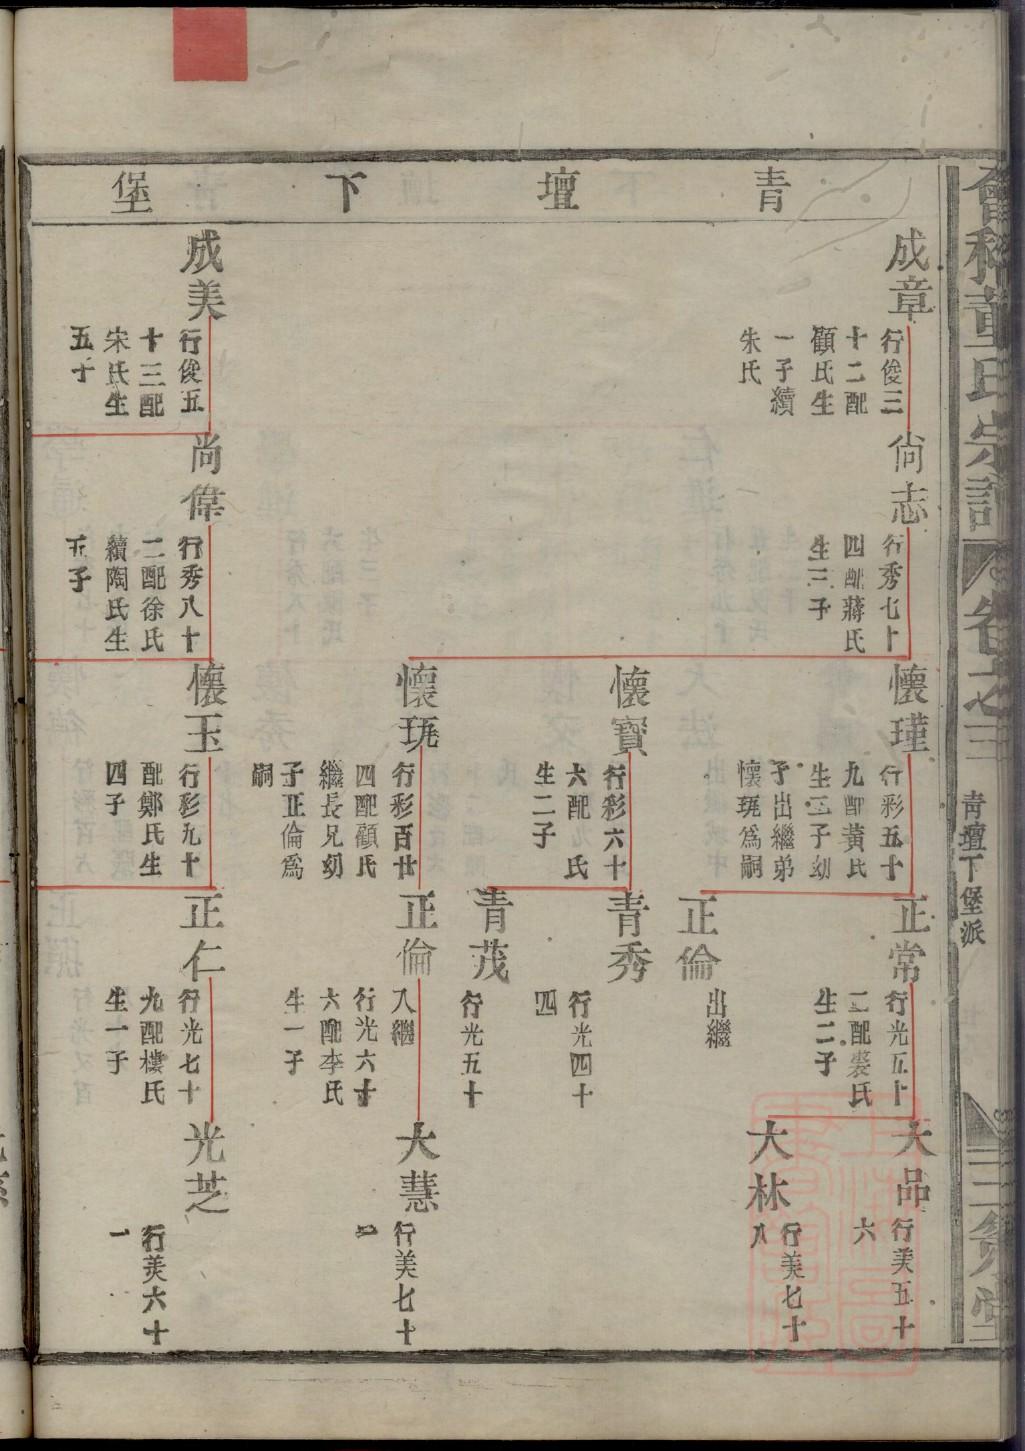 會稽董氏宗譜
卷之三
青壇下堡派
三策堂
青壇下堡
成章
行俊三
十二配
顧氏生
一子續
朱氏
成美
行俊五
十三配
宋氏生
五子
尚志
行秀七十
四配蔣氏
生三子
尚偉
行秀八十
二配徐氏
續陶氏生
五子
懷瑾
行彩五十
九配黃氏
生三子幼
子出繼弟
懷珗爲嗣
懷寶
行彩六十
六配 氏
生二子
懷珗
行彩百廿
四配顧氏
繼長兄幼
子正倫爲
嗣
懷玉
行彩九十
配鄭氏生
四子
正常
行光五十
二配裘氏
生二子
正倫
出繼
青秀
行光四十
四
青茂
行光五十
正倫
入繼
行光六十
六配李氏
生一子
正仁
行光七十
九配樓氏
生一子
大品
行美五十
六
大林
行美七十
八
大慧
行美七十
光芝
行美六十
一